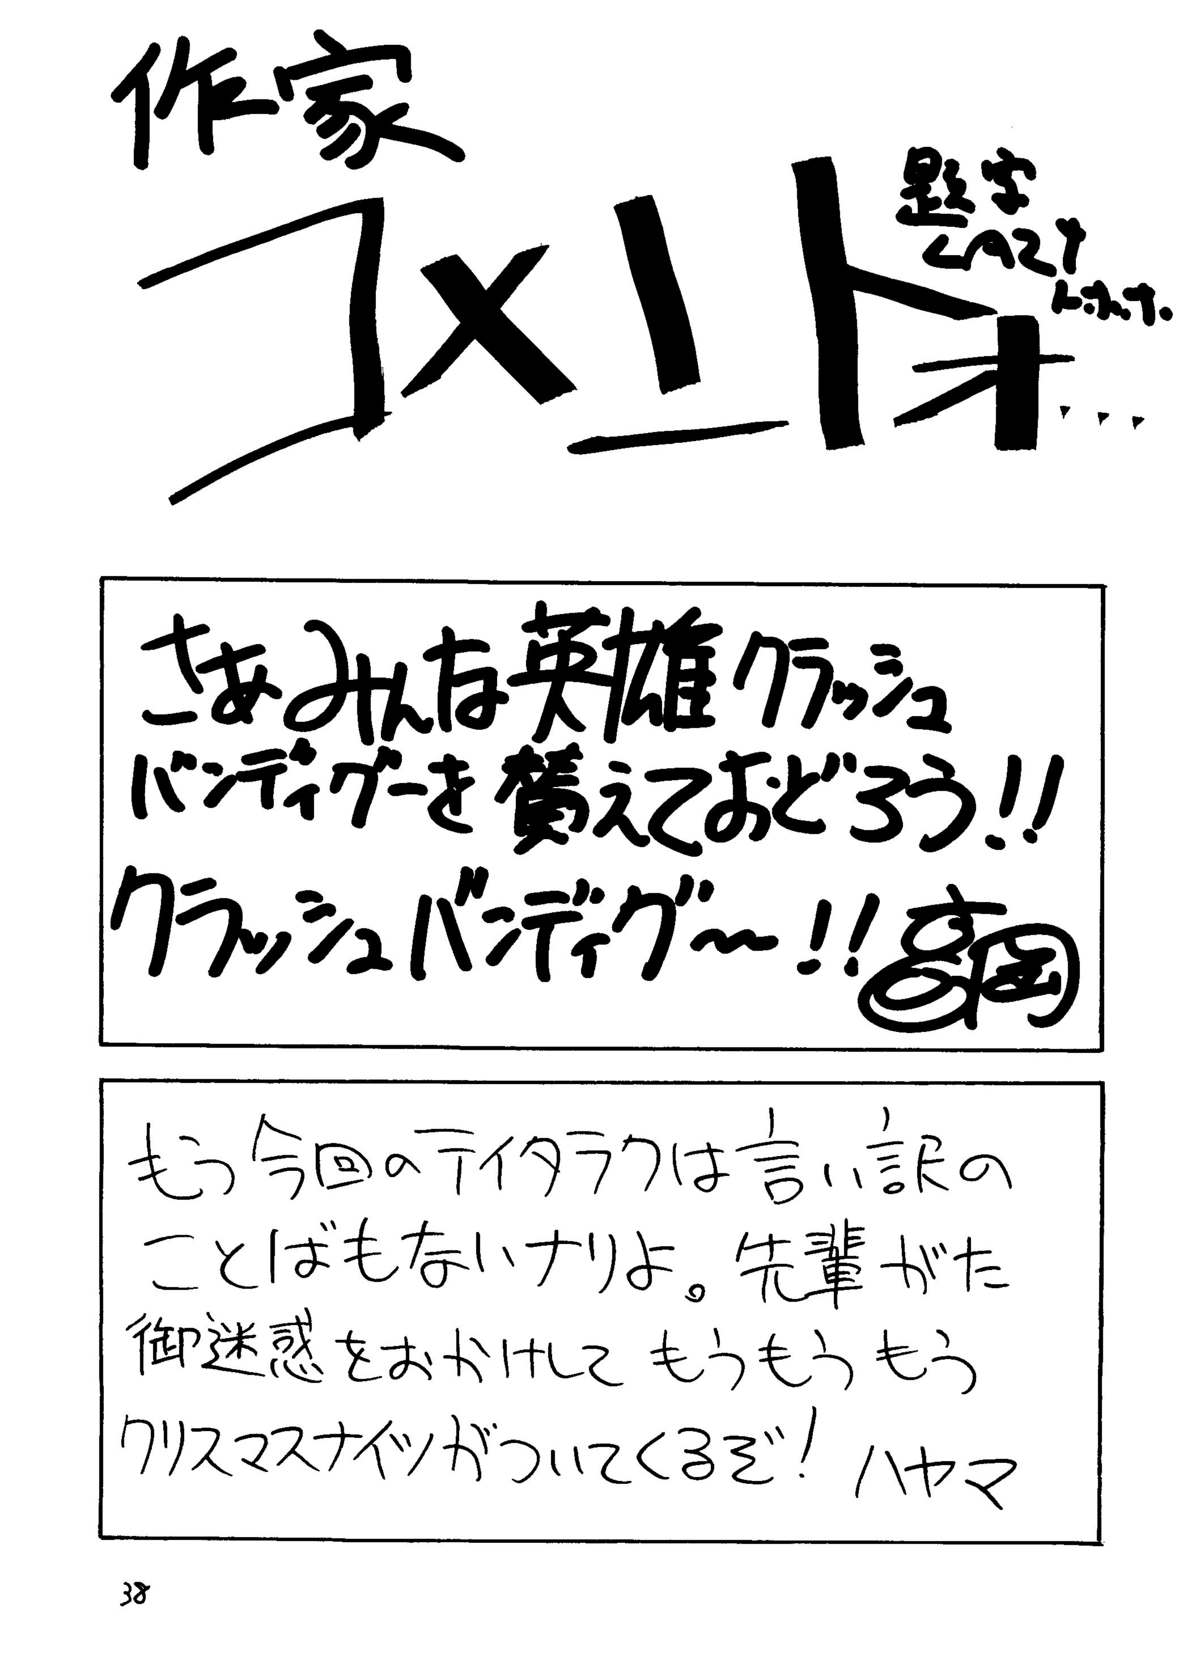 作家
コメントォ...
題字
LAZY
トホホ。
さあみんな英雄クラッシュ
バンディグーを賛えておどろう!!
クラッシュバンディグ〜〜!!高岡
もう今回のテイタラクは言い訳の
ことばもないナリよ。先輩がた
御迷惑をおかけしてもうもうもう
クリスマスナイツがついてくるぞ!ハヤマ
38